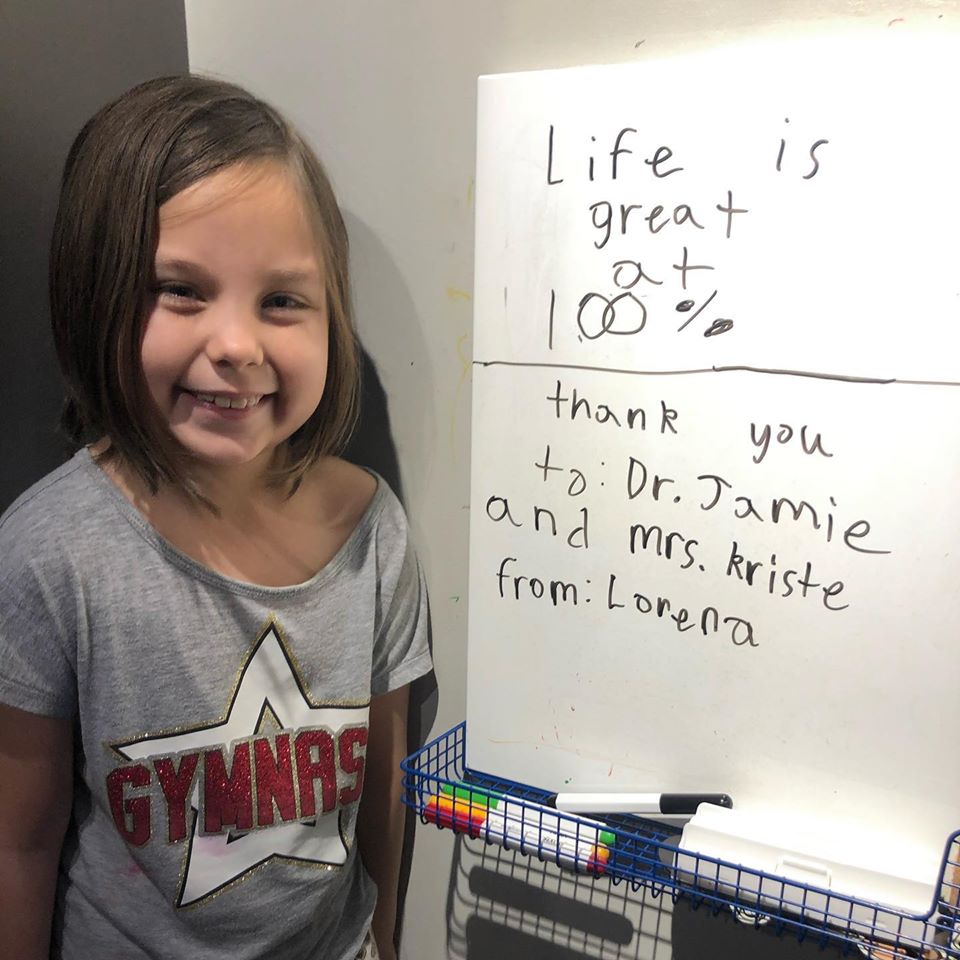 Life is
great
at
100%
thank you
to: Dr. Jamie
and mrs. kriste
from: Lorena
GYMNAS